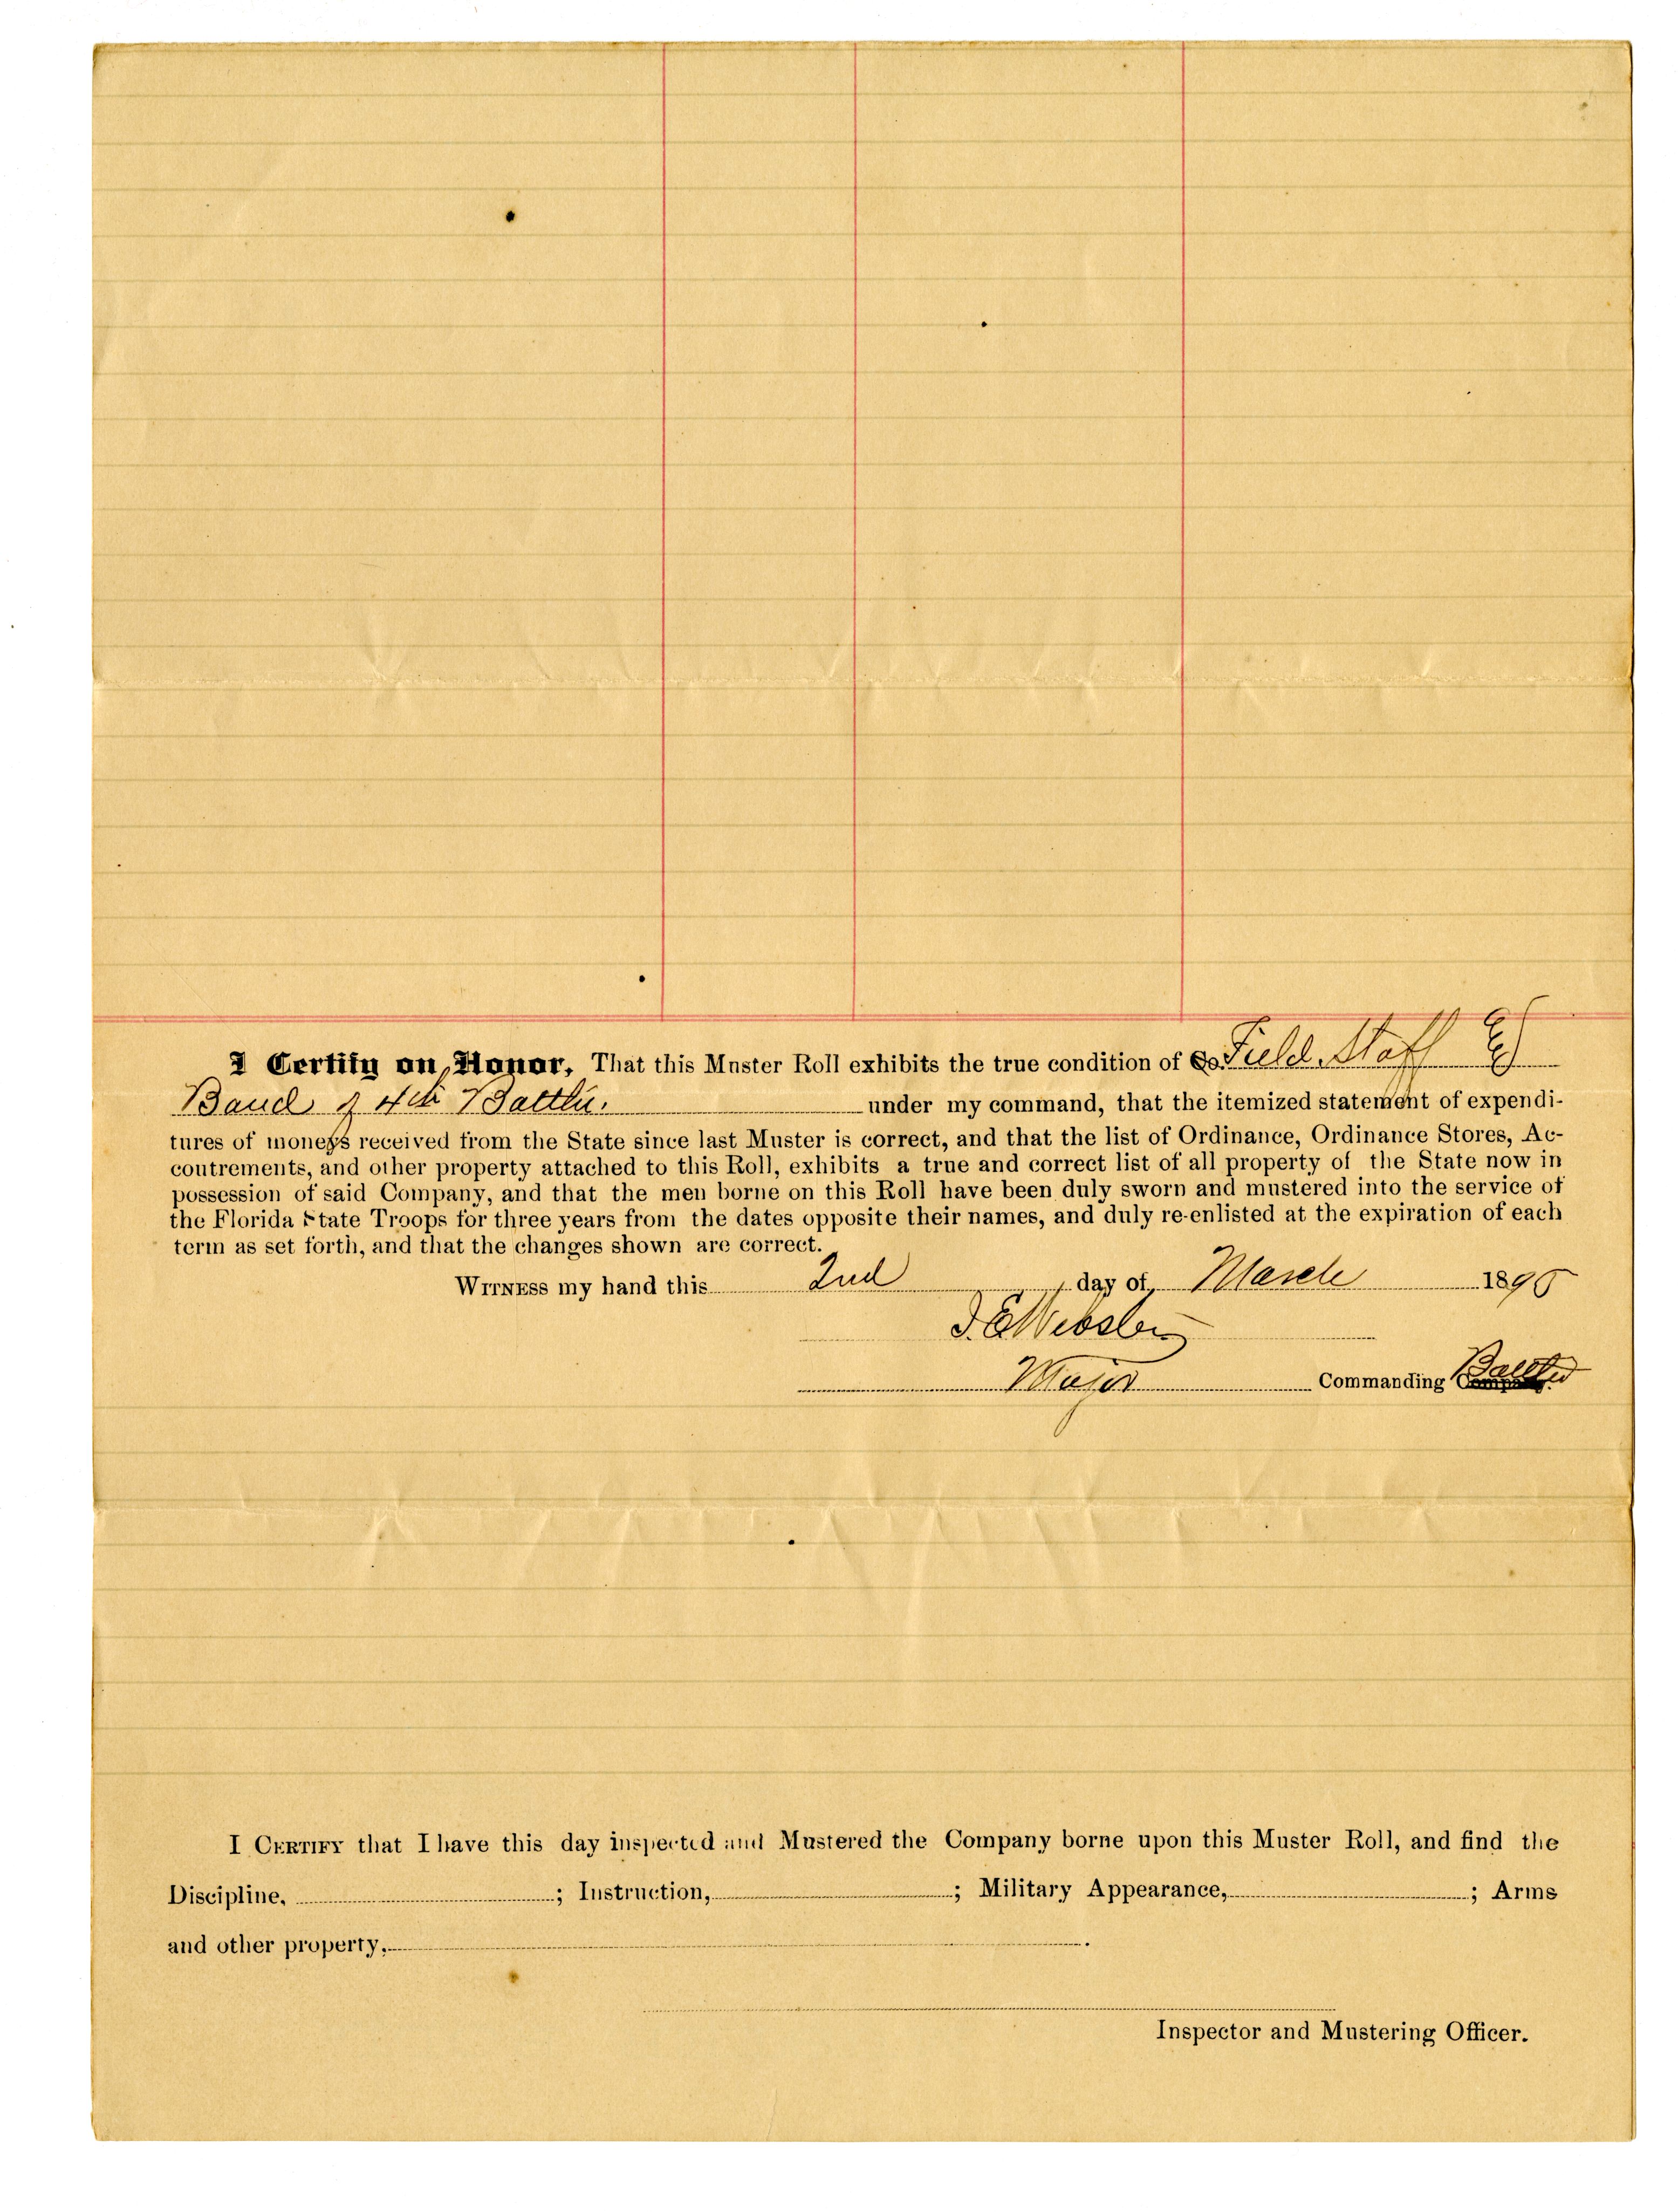 I Certify on Honor, That this Muster Roll exhibits the true condition of Co. Field Staff &
Band of 4th Battln. under my command, that the itemized statement of expendi-
tures of moneys received from the State since last Muster is correct, and that the list of Ordinance, Ordinance Stores, Ac-
coutrements, and other property attached to this Roll, exhibits a true and correct list of all property of the State now in
possession of said Company, and that the men borne on this Roll have been duly sworn and mustered into the service of
the Florida State Troops for three years from the dates opposite their names, and duly re-enlisted at the expiration of each
term as set forth, and that the changes shown are correct.
WITNESS my hand this 2nd day of March 1895
J. E. Webster
Major Commanding Company.
I CERTIFY that I have this day inspected and Mustered the Company borne upon this Muster Roll, and find the
Discipline, ; Instruction, ; Military Appearance, ; Arms
and other property, .
Inspector and Mustering Officer.